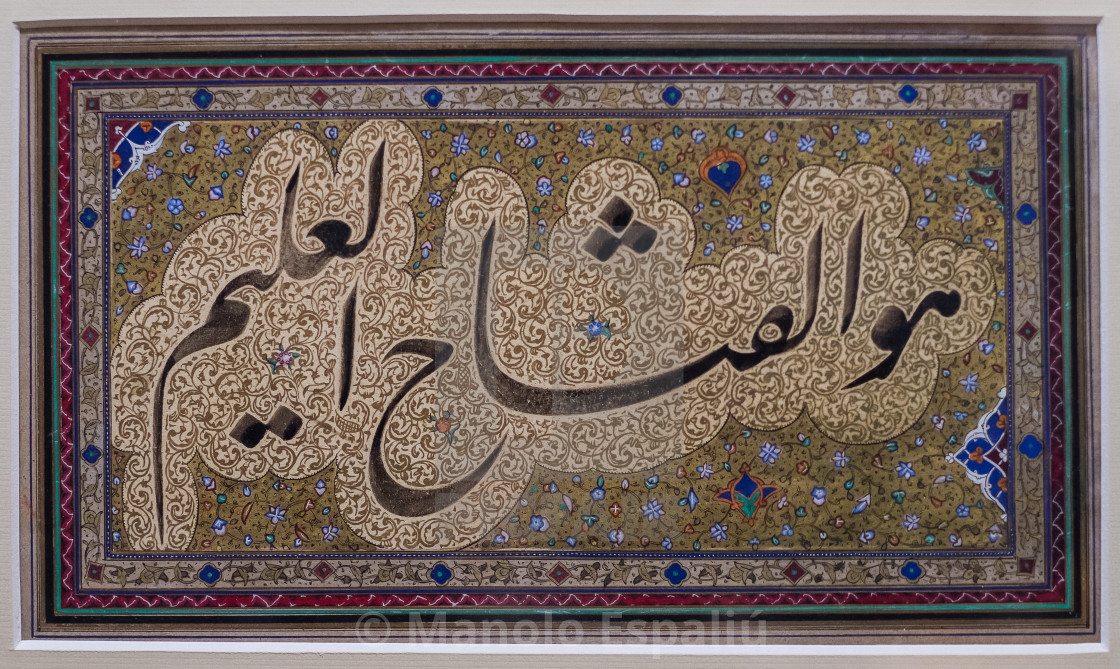 هو الفتاح العليم
© Manolo Espaliú